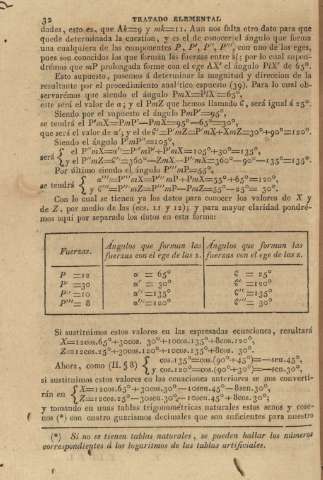 32 TRATADO ELEMENTAL
dadas, esto es, que Ak=9 y mk=11. Aun nos falta otro dato para que
quede determinada la cuestion, y es el de conocer el ángulo que forma
una cualquiera de las componentes P, P', P'', P''', con uno de los eges,
pues son conocidos los que forman las fuerzas entre sí; por lo cual supon-
drémos que mP prolongada forme con el ege AX' el ángulo PiX' de 65°.
Esto supuesto, pasemos á determinar la magnitud y direccion de la
resultante por el procedimiento analítico expuesto (39). Para lo cual ob-
servarémos que siendo el ángulo PmX=PiX'=65°,
este será el valor de α; y el PmZ que hemos llamado ϐ, será igual á 25°.
Siendo por el supuesto el ángulo PmP'=95°,
se tendrá el P'mX=PmP'—PmX=95°—65°=30°,
que será el valor de α'; y el de ϐ'=P'mZ=P'mX+XmZ=30°+90°=120°.
Siendo el ángulo P'mP''=105°,
será { el P''mX=α''=P''mP'+P'mX=105°+30°=135°,
y el P''mZ=ϐ''=360°—ZmX—P''mX=360°—90°—135°=135°.
Por último siendo el ángulo P'''mP=55°,
se tendrá { α'''=P'''mX=P'''mP+PmX=55°+65°=120°,
y ϐ'''=P'''mZ=P'''mP—PmZ=55°—25°=30°.
Con lo cual se tienen ya los datos para conocer los valores de X y
de Z, por medio de las (ecs. 11 y 12); y para mayor claridad pondré-
mos aquí por separado los datos en esta forma:
Fuerzas. Ángulos que forman las fuerzas con el ege de las x. Ángulos que forman las fuerzas con el ege de las z.
P =12 α = 65° ϐ = 25°
P' =30 α' = 30° ϐ' =120°
P'' =10 α'' =135° ϐ'' =135°
P''' = 8 α''' =120° ϐ''' = 30°
Si sustituimos estos valores en las espresadas ecuaciones, resultará
X=12cos.65°+30cos. 30°+10cos.135°+8cos.120°,
Z=12cos.25°+30cos.120°+10cos.135°+8cos. 30°.
Ahora, como (II. § 8) { cos.135°=cos.(90°+45°)=—sen.45°,
y cos.120°=cos.(90°+30°)=—sen.30°,
si sustituimos estos valores en las ecuaciones anteriores se nos converti-
rán en { X=12cos.65°+30cos.30°—10sen.45°—8sen.30°,
Z=12cos.25°—30sen.30°—10sen.45°+8cos.30°;
y tomando en unas tablas trigonométricas naturales estos senos y cose-
nos (*) con cuatro guarismos decimales que son suficientes para nuestro
(*) Si no se tienen tablas naturales, se pueden hallar los números
correspondientes á los logaritmos de las tablas artificiales.